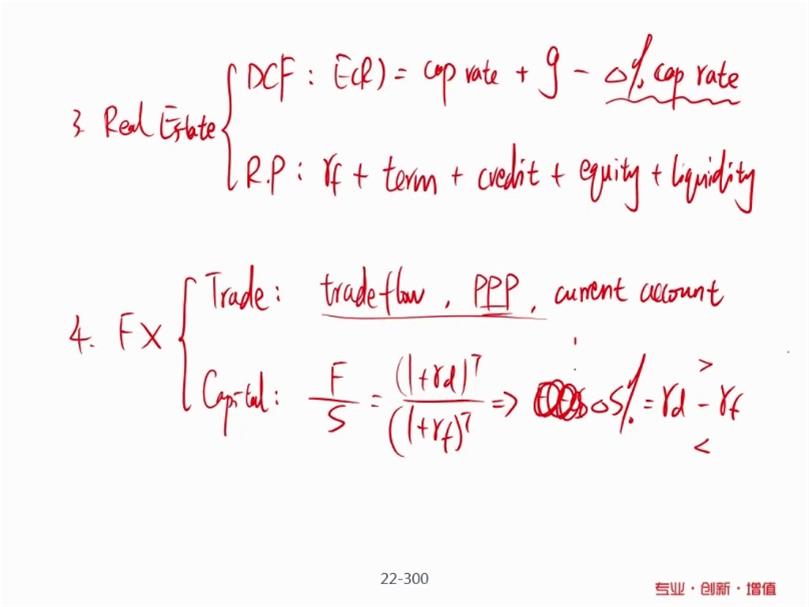 3. Real Estate
DCF : E(R) = cap rate + g - △% cap rate
R.P : rf + term + credit + equity + liquidity
4. FX
Trade : trade flow , PPP , current account
Capital : F/S = (1+rd)^T/(1+rf)^T => △S% = rd - rf
>
<
22-300
专业·创新·增值